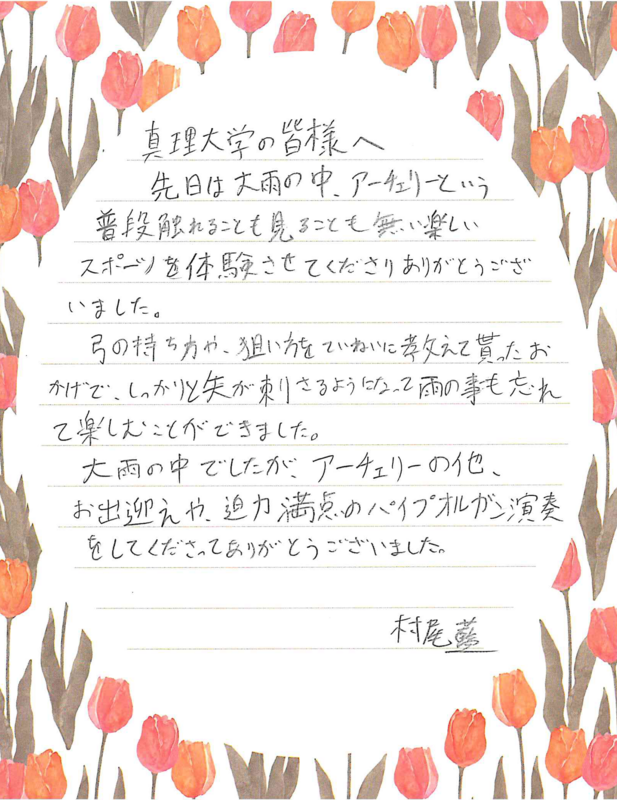 真理大学の皆様へ
先日は大雨の中、アーチェリーという
普段触れることも見ることも無い楽しい
スポーツを体験させてくださりありがとうござ
いました。
弓の持ち方や、狙い方をていねいに教えて貰ったお
かげで、しっかりと矢が刺さるようになって雨の事も忘れ
て楽しむことができました。
大雨の中でしたが、アーチェリーの他、
お出迎えや、迫力満点のパイプオルガン演奏
をしてくださってありがとうございました。
村尾藍